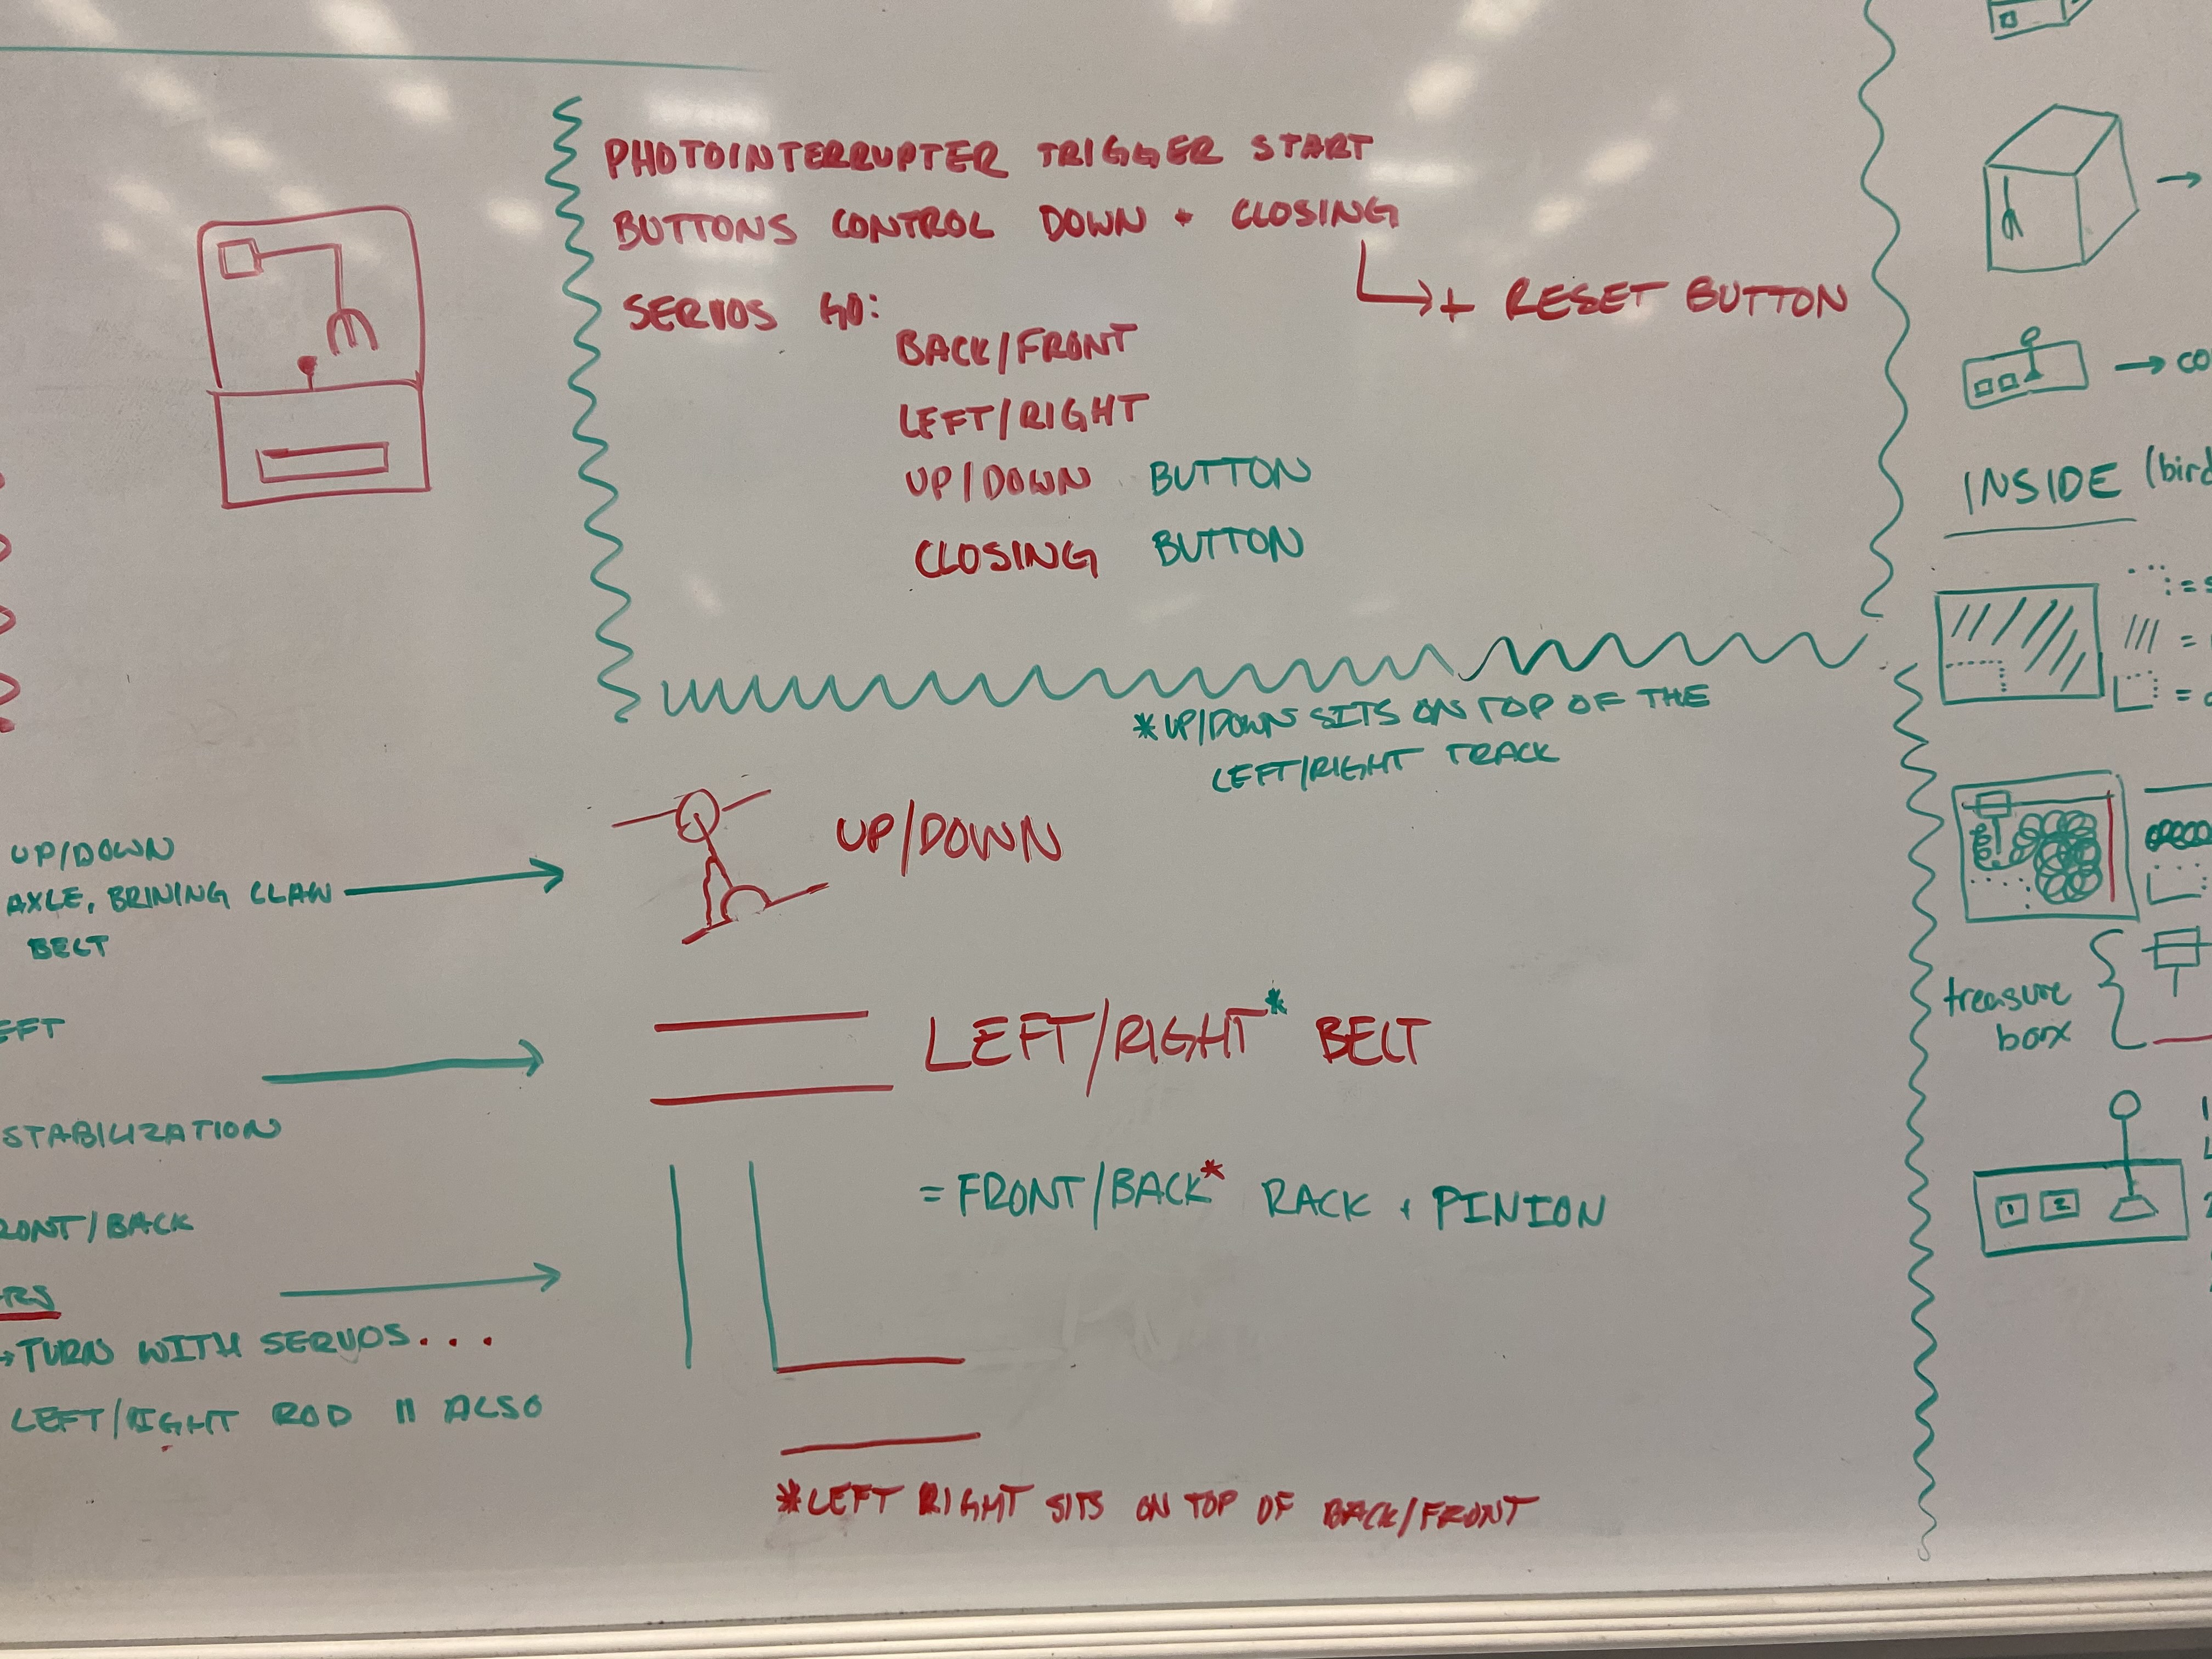 PHOTOINTERRUPTER TRIGGER START
BUTTONS CONTROL DOWN + CLOSING
+ RESET BUTTON
SERVOS GO:
BACK/FRONT
LEFT/RIGHT
UP/DOWN BUTTON
CLOSING BUTTON
*UP/DOWN SITS ON TOP OF THE
LEFT/RIGHT TRACK
UP/DOWN
AXLE, BRINING CLAW
BELT
UP/DOWN
LEFT/RIGHT* BELT
STABILIZATION
= FRONT/BACK* RACK + PINION
/BACK
→TURN WITH SERVOS...
LEFT/RIGHT ROD " ALSO
*LEFT RIGHT SITS ON TOP OF BACK/FRONT
INSIDE (bird
treasure
box
1 2